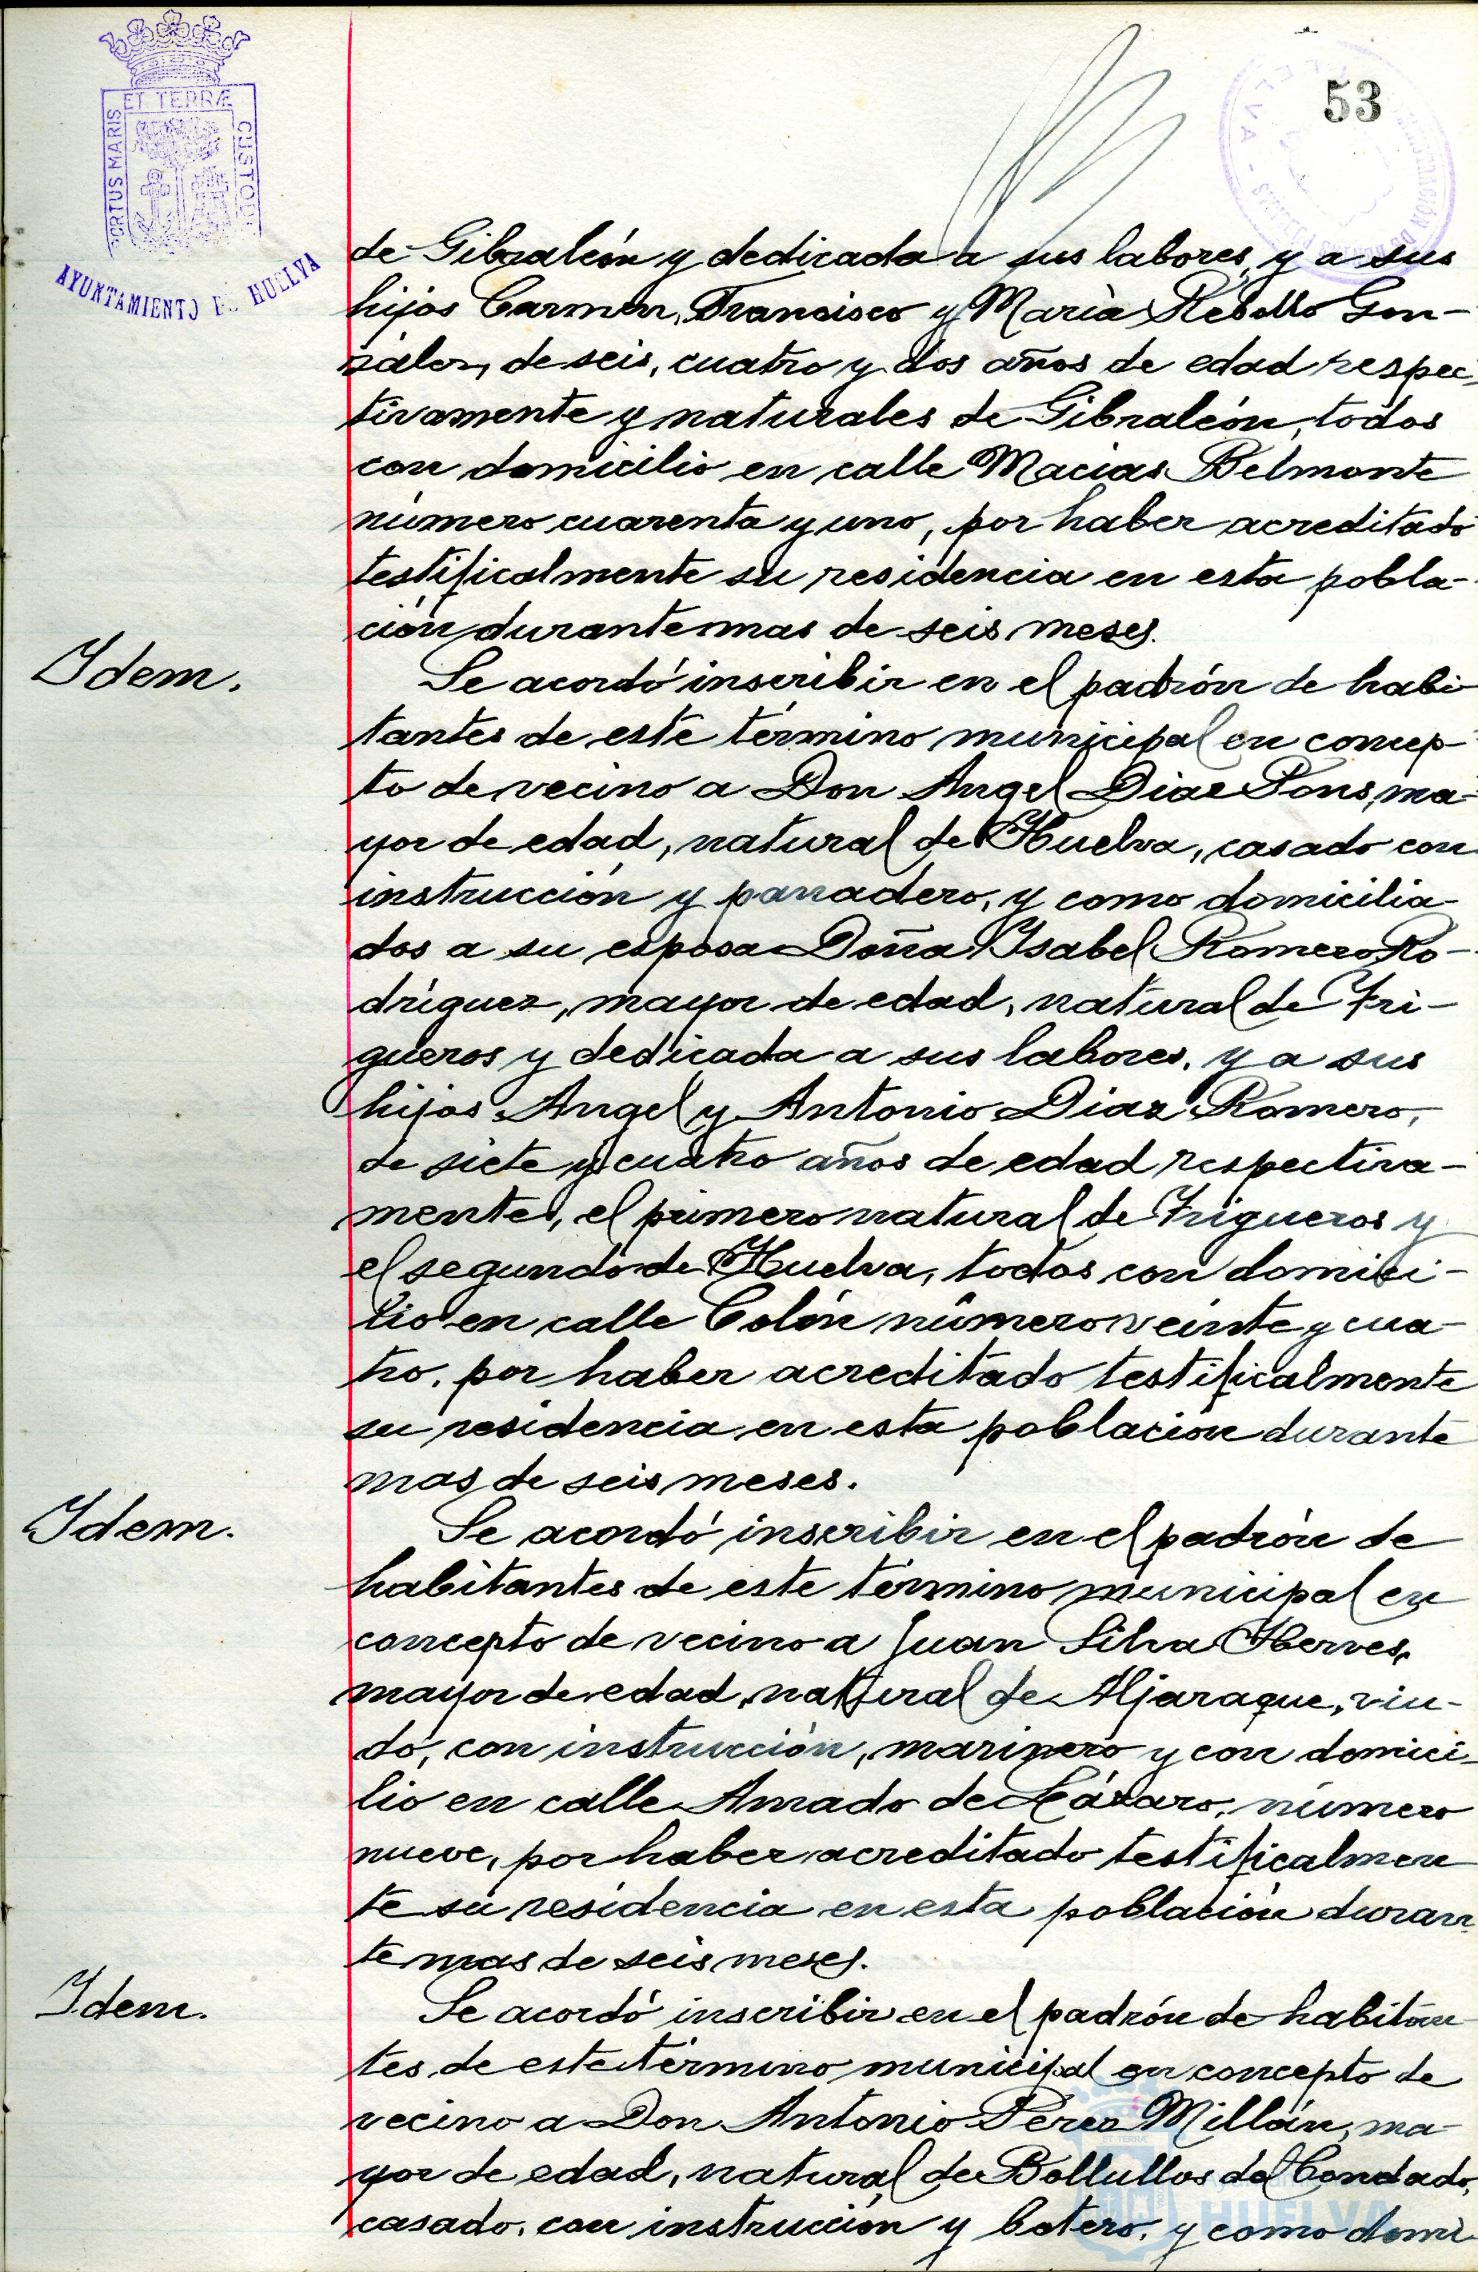 53
PORTUS MARIS
ET TERRÆ
CUSTODI
AYUNTAMIENTO DE HUELVA
de Gibraleón y dedicada a sus labores, y a sus
hijos Carmen, Francisco y María Rebollo Gon-
zález, de seis, cuatro y dos años de edad respec-
tivamente y naturales de Gibraleón, todos
con domicilio en calle Macias Belmonte
número cuarenta y uno, por haber acreditado
testificalmente su residencia en esta pobla-
ción durante mas de seis meses.
Idem.
Se acordó inscribir en el padrón de habi-
tantes de este término municipal en concep-
to de vecino a Don Angel Diaz Pons, ma-
yor de edad, natural de Huelva, casado con
instrucción y panadero, y como domicilia-
dos a su esposa Doña Isabel Romero Ro-
dríguez, mayor de edad, natural de Tri-
gueros y dedicada a sus labores, y a sus
hijos Angel y Antonio Diaz Romero,
de siete y cuatro años de edad respectiva-
mente, el primero natural de Trigueros y
el segundo de Huelva, todos con domici-
lio en calle Colón número veinte y cua-
tro, por haber acreditado testificalmente
su residencia en esta población durante
mas de seis meses.
Idem.
Se acordó inscribir en el padrón de
habitantes de este término municipal en
concepto de vecino a Juan Silva Herves,
mayor de edad, natural de Aljaraque, viu-
do, con instrucción, marinero y con domici-
lio en calle Amado de Lázaro, número
nueve, por haber acreditado testificalmen
te su residencia en esta población duran-
te mas de seis meses.
Idem.
Se acordó inscribir en el padrón de habitan-
tes de este término municipal en concepto de
vecino a Don Antonio Perez Millán, ma-
yor de edad, natural de Bollullos del Condado,
casado, con instrucción y botero, y como domi-
HUELVA